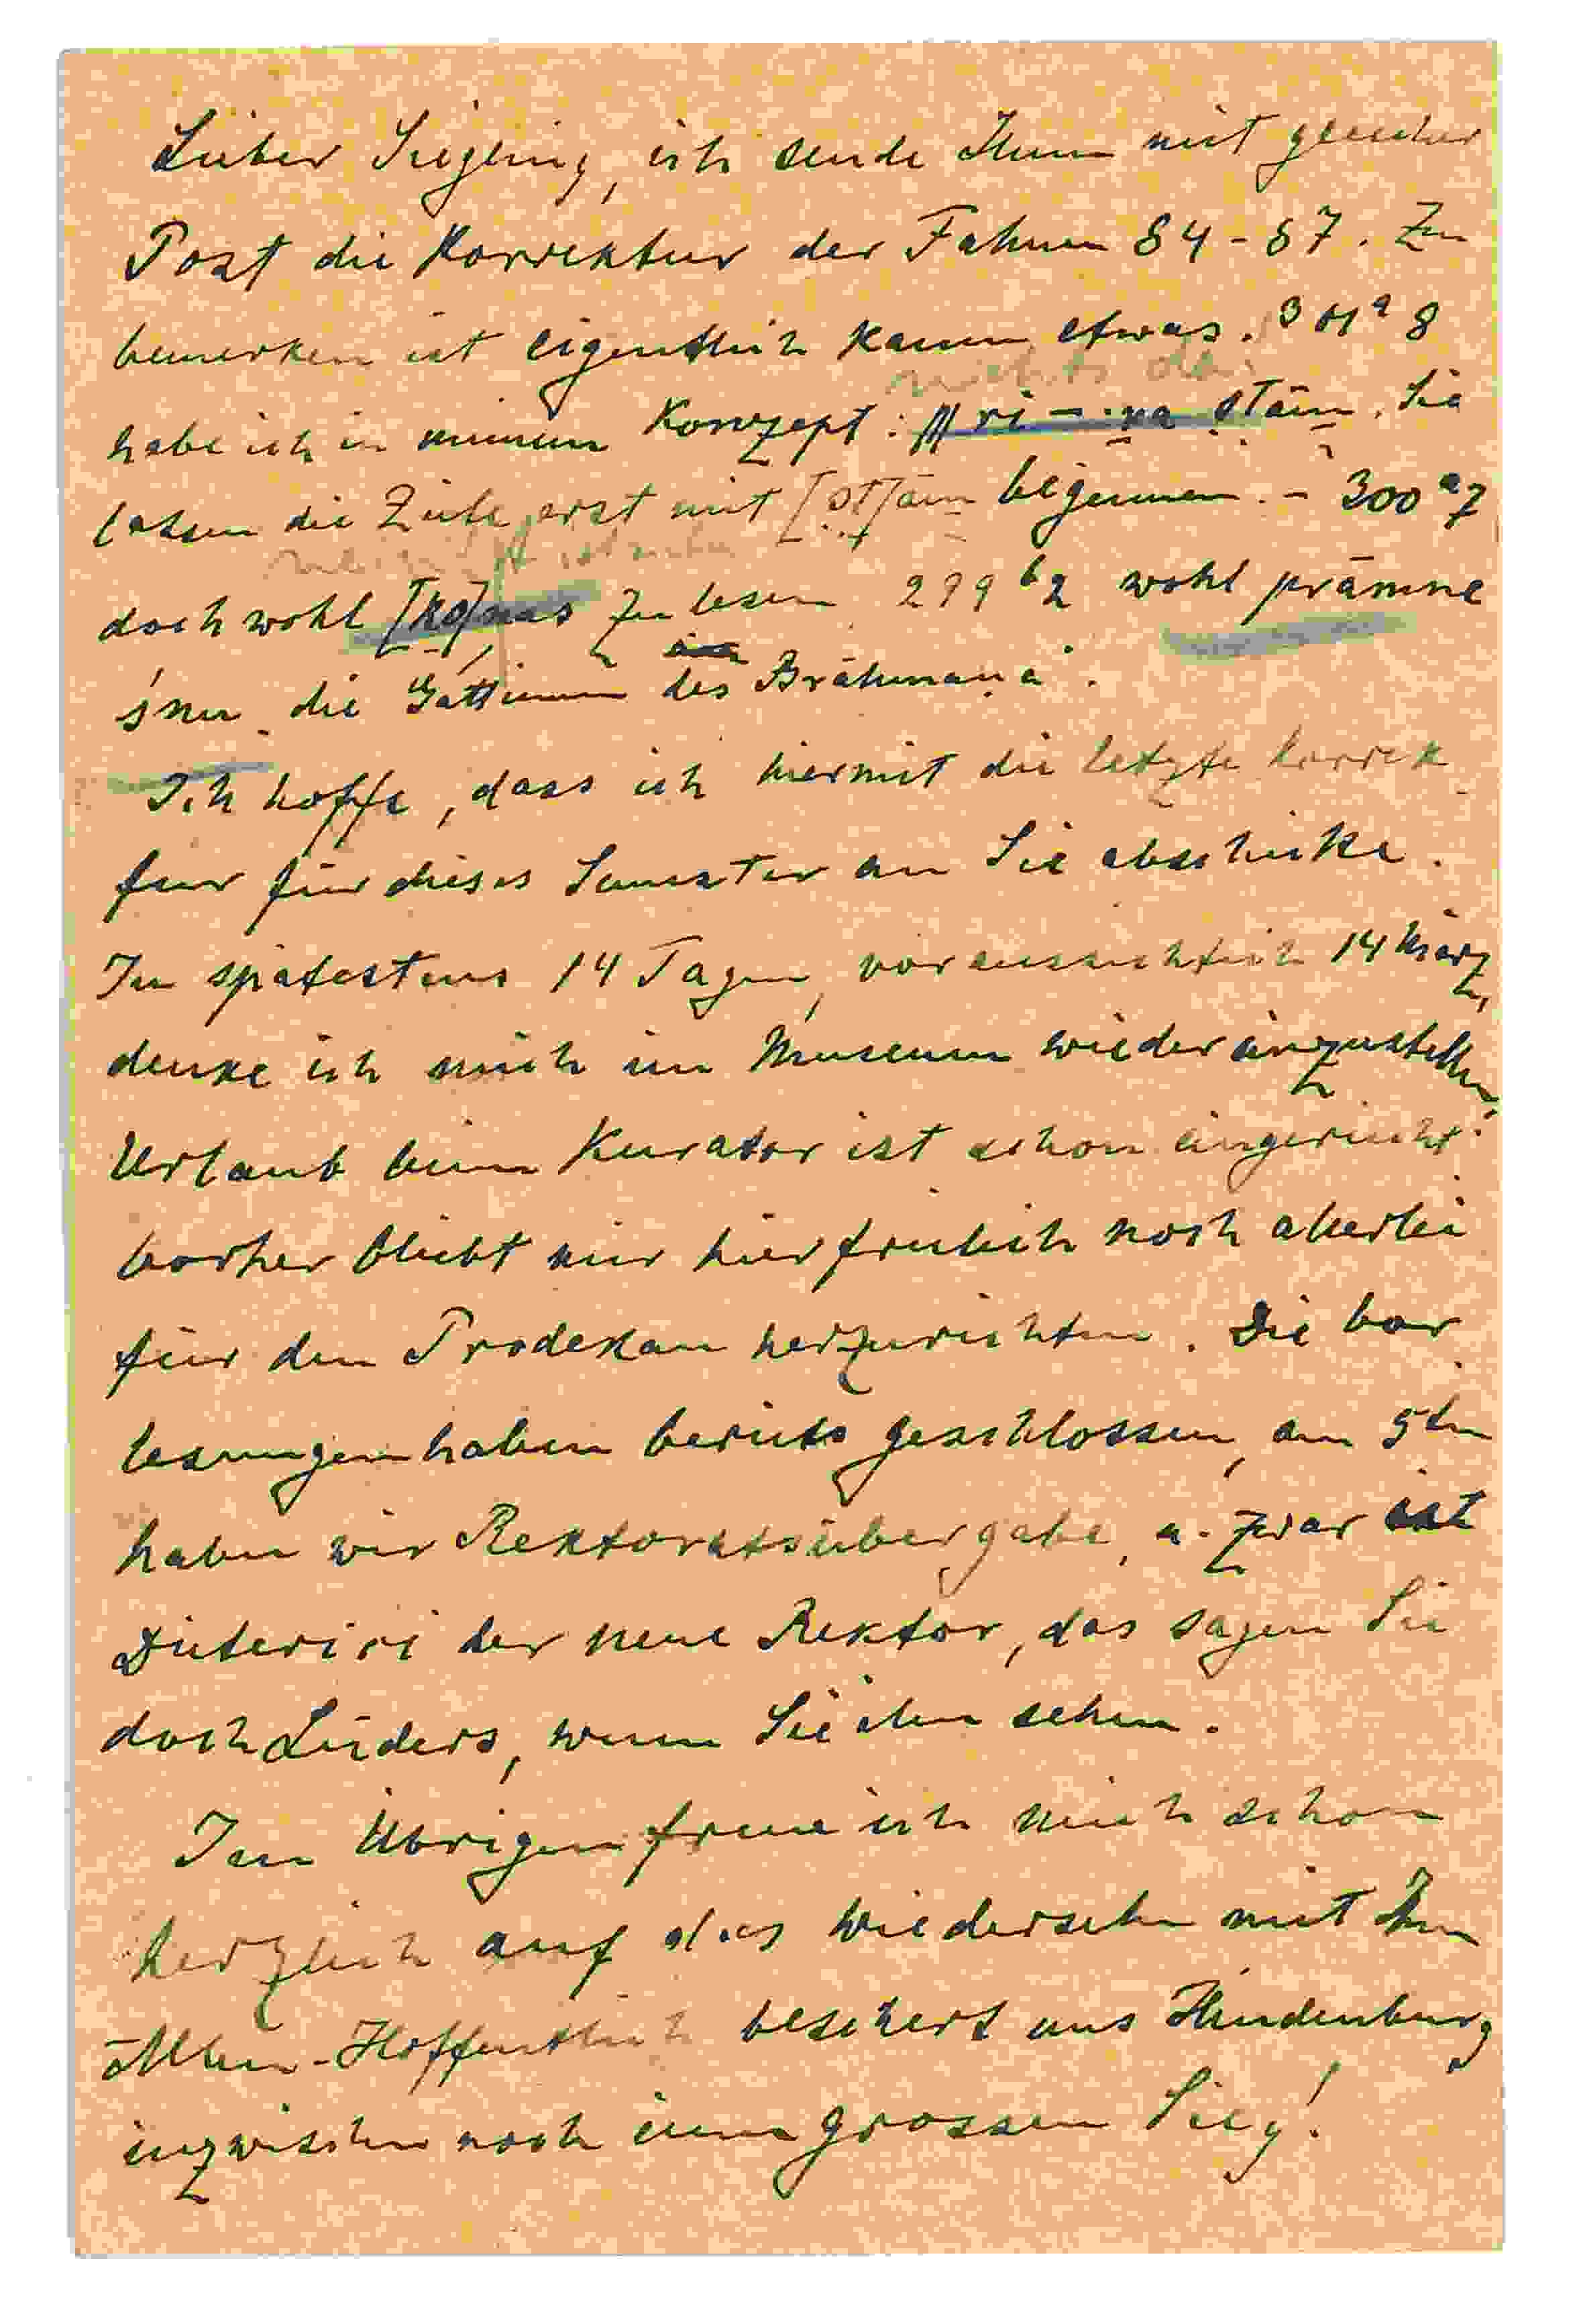 Lieber Siegling, ich sende Ihnen mit gleicher
Post die Korrektur der Fahnen 84-87. Zu
bemerken ist eigentlich kaum etwas. 301ᵃ 8
nichts da!
habe ich in meinem Konzept: ri – · ṣa ṣtām. Sie
lassen die Zeile erst mit [ṣt]ām beginnen. – 300ᵃ7
doch wohl [ko]nas zu lesen 299ᵇ2 wohl prāmne
śnu „die Gattinnen des Brāhmaṇa".
Ich hoffe, dass ich hiermit die letzte Korrek-
tur für dieses Semester an Sie abschicke.
In spätestens 14 Tagen, voraussichtlich 14 März,
denke ich mich im Museum wieder einzustellen,
Urlaub beim Kurator ist schon eingereicht.
Vorher bleibt mir hier freilich noch allerlei
für den Prodekan herzurichten. Die Vor-
lesungen haben bereits geschlossen, am 5ten
haben wir Rektoratsübergabe, u. zwar ist
Dieterici der neue Rektor, das sagen Sie
doch Lüders, wenn Sie ihn sehen.
Im Übrigen freue ich mich schon
herzlich auf das Wiedersehn mit Ihn
Allen. - Hoffentlich beschert uns Hindenburg
inzwischen noch einen grossen Sieg!